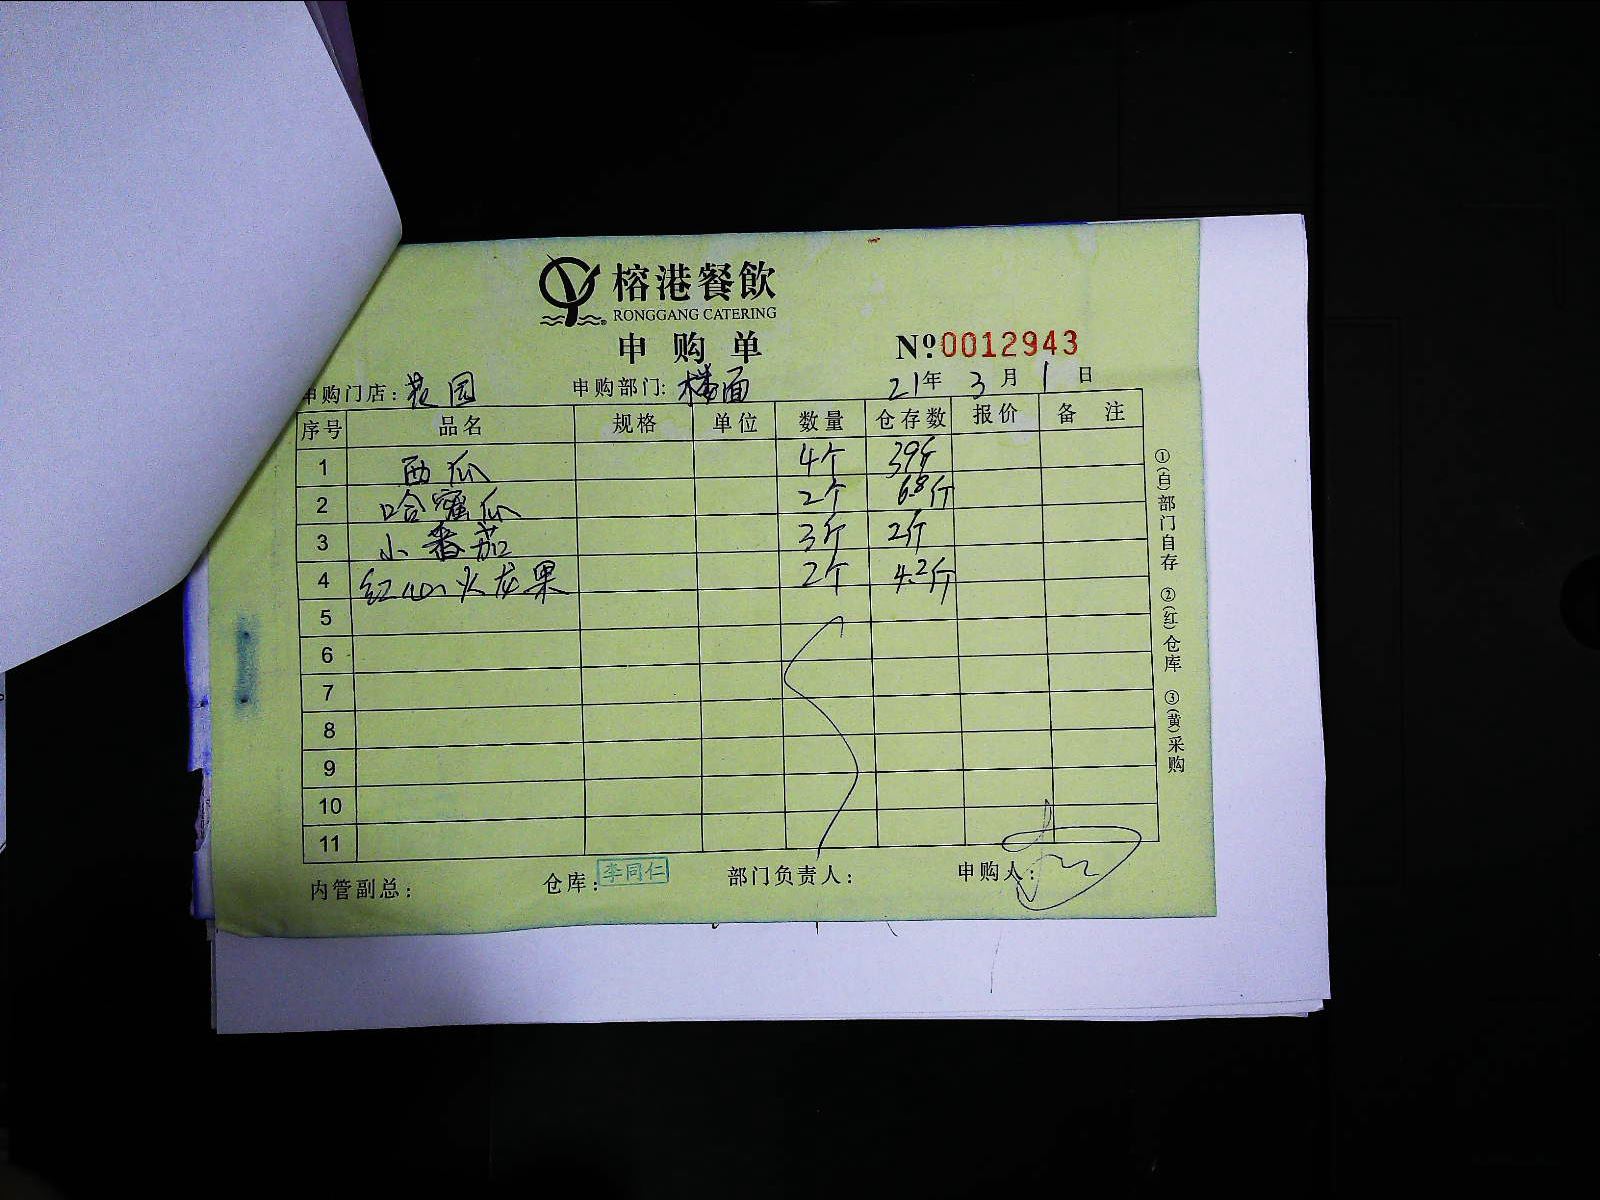 榕港餐飲
RONGGANG CATERING
申购单
Nº0012943
申购门店：花园 申购部门：楼面 21年3月1日
序号 品名 规格 单位 数量 仓存数 报价 备注
1 西瓜 4个 39斤
2 哈蜜瓜 2个 6.8斤
3 小番茄 3斤 2斤
4 红心火龙果 2个 4.2斤
5
6
7
8
9
10
11
内管副总： 仓库：李同仁 部门负责人： 申购人：
①(白)部门自存 ②(红)仓库 ③(黄)采购